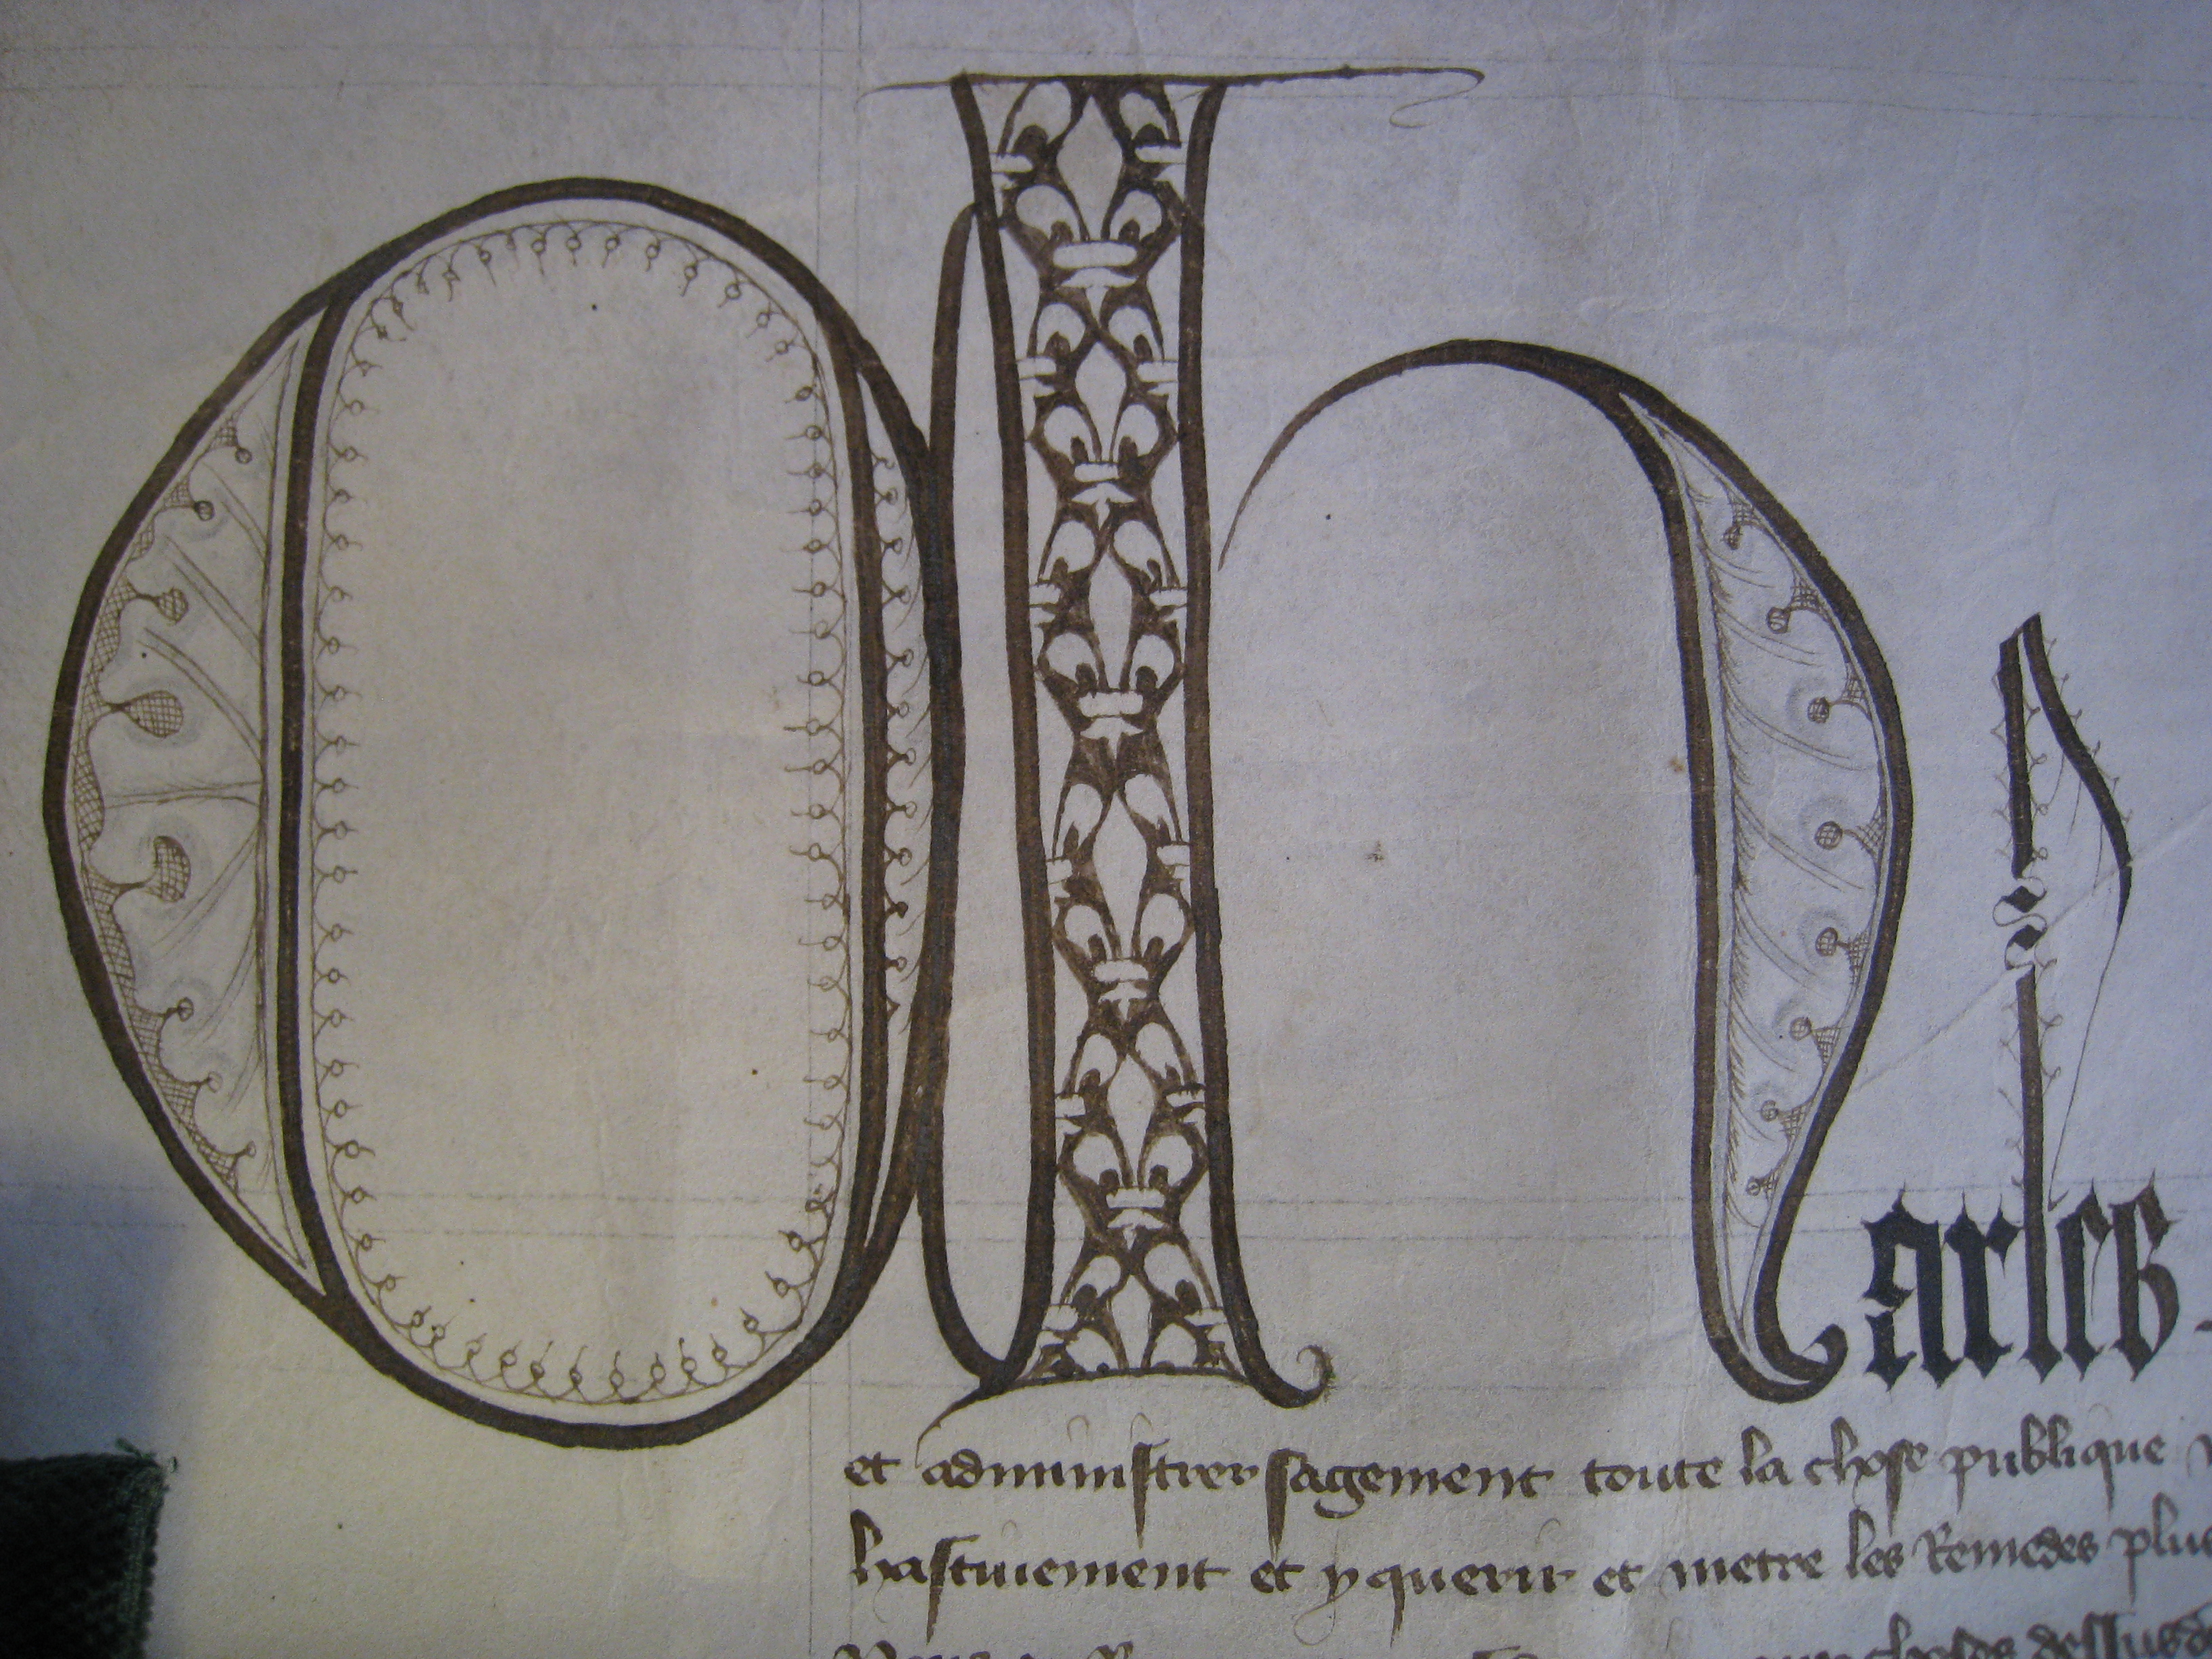 Charles
et administrer sagement toute la chose publique
hastivement et y querir et metre les Remedes plus
choses dessusd